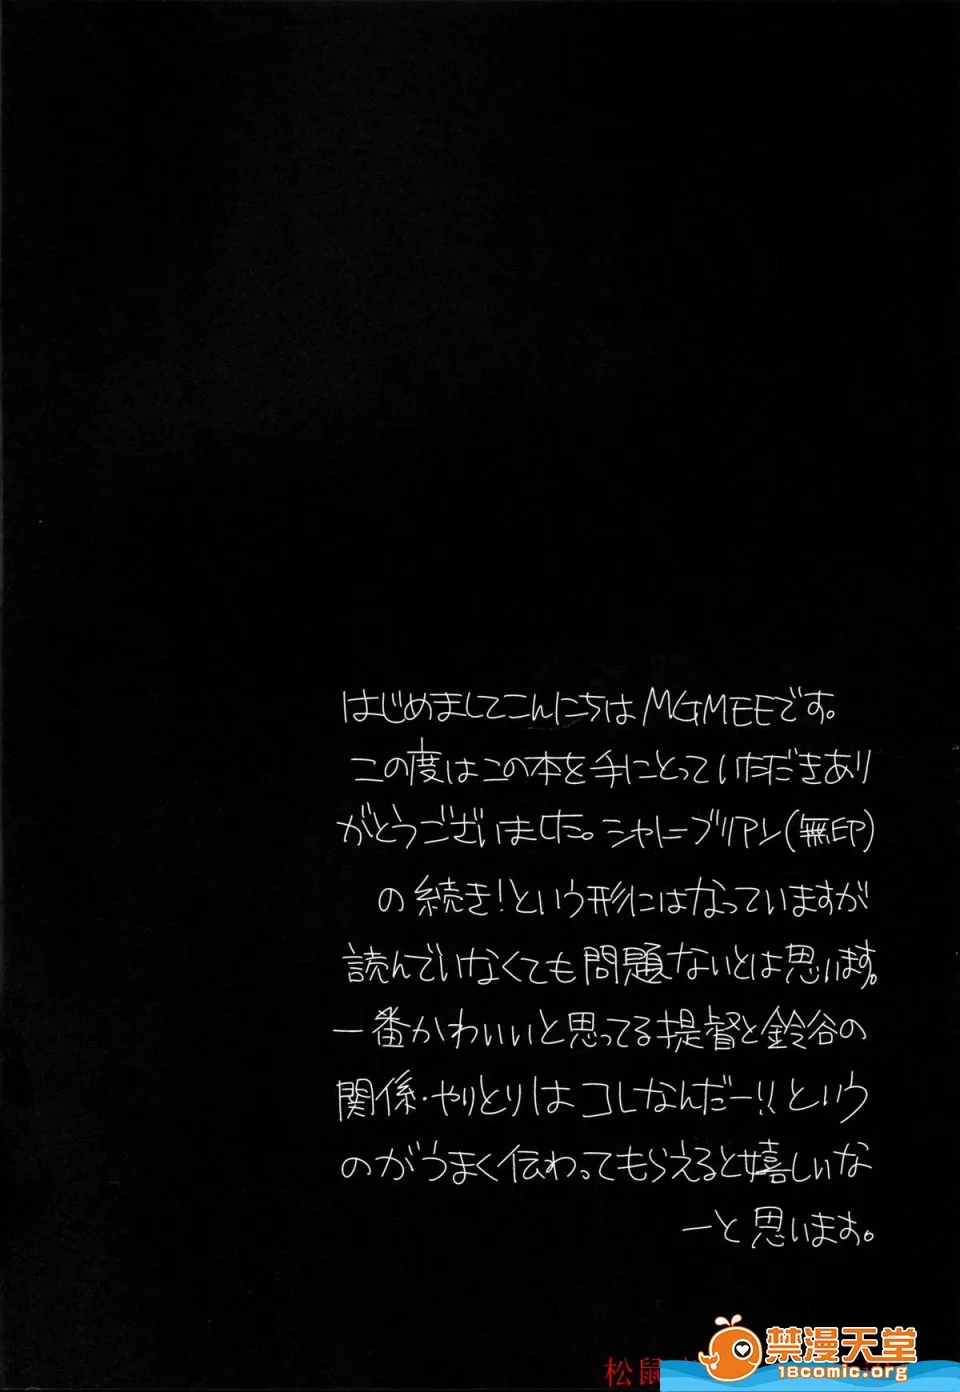 はじめましてこんにちはMGMEEです。
この度はこの本を手にとっていただきあり
がとうございました。シャトーブリアン(無印)
の続き!という形にはなっていますが
読んでいなくても問題ないとは思います。
一番かわいいと思ってる提督と鈴谷の
関係・やりとりはコレなんだー!!という
のがうまく伝わってもらえると嬉しいな
ーと思います。
禁漫天堂
18comic.org
松鼠